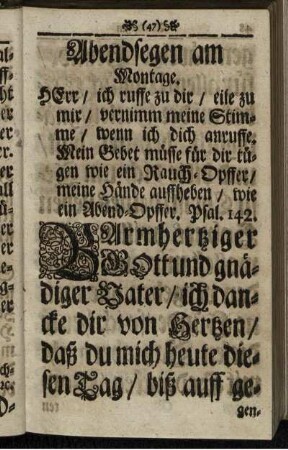 (47)
Abendsegen am
Montage.
HErr / ich ruffe zu dir / eile zu
mir / vernimm meine Stim-
me / wenn ich dich anruffe.
Mein Gebet müsse für dir tü-
gen wie ein Rauch-Opffer /
meine Hände auffheben / wie
ein Abend-Opffer. Psal. 142.
BArmhertziger
GOtt und gnä-
diger Vater / ich dan-
cke dir von Hertzen /
daß du mich heute die-
sen Tag / biß auff ge-
gen-